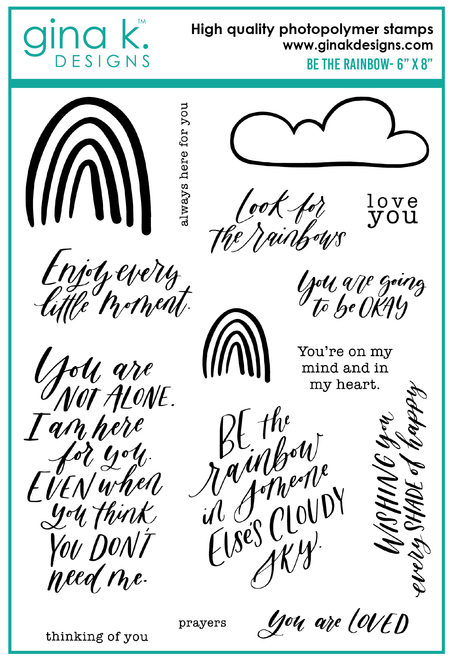 gina k.™
DESIGNS
High quality photopolymer stamps
www.ginakdesigns.com
BE THE RAINBOW- 6" X 8"
always here for you
Look for
the rainbows
love
you
Enjoy every
little moment.
You are going
to be OKAY
You're on my
mind and in
my heart.
You are
NOT ALONE.
I am here
for you.
EVEN when
you think
YOU DON'T
need me.
BE the
rainbow
in someone
ELSE'S CLOUDY
SKY.
WISHING you
every SHADE of happy
thinking of you
prayers
You are LOVED